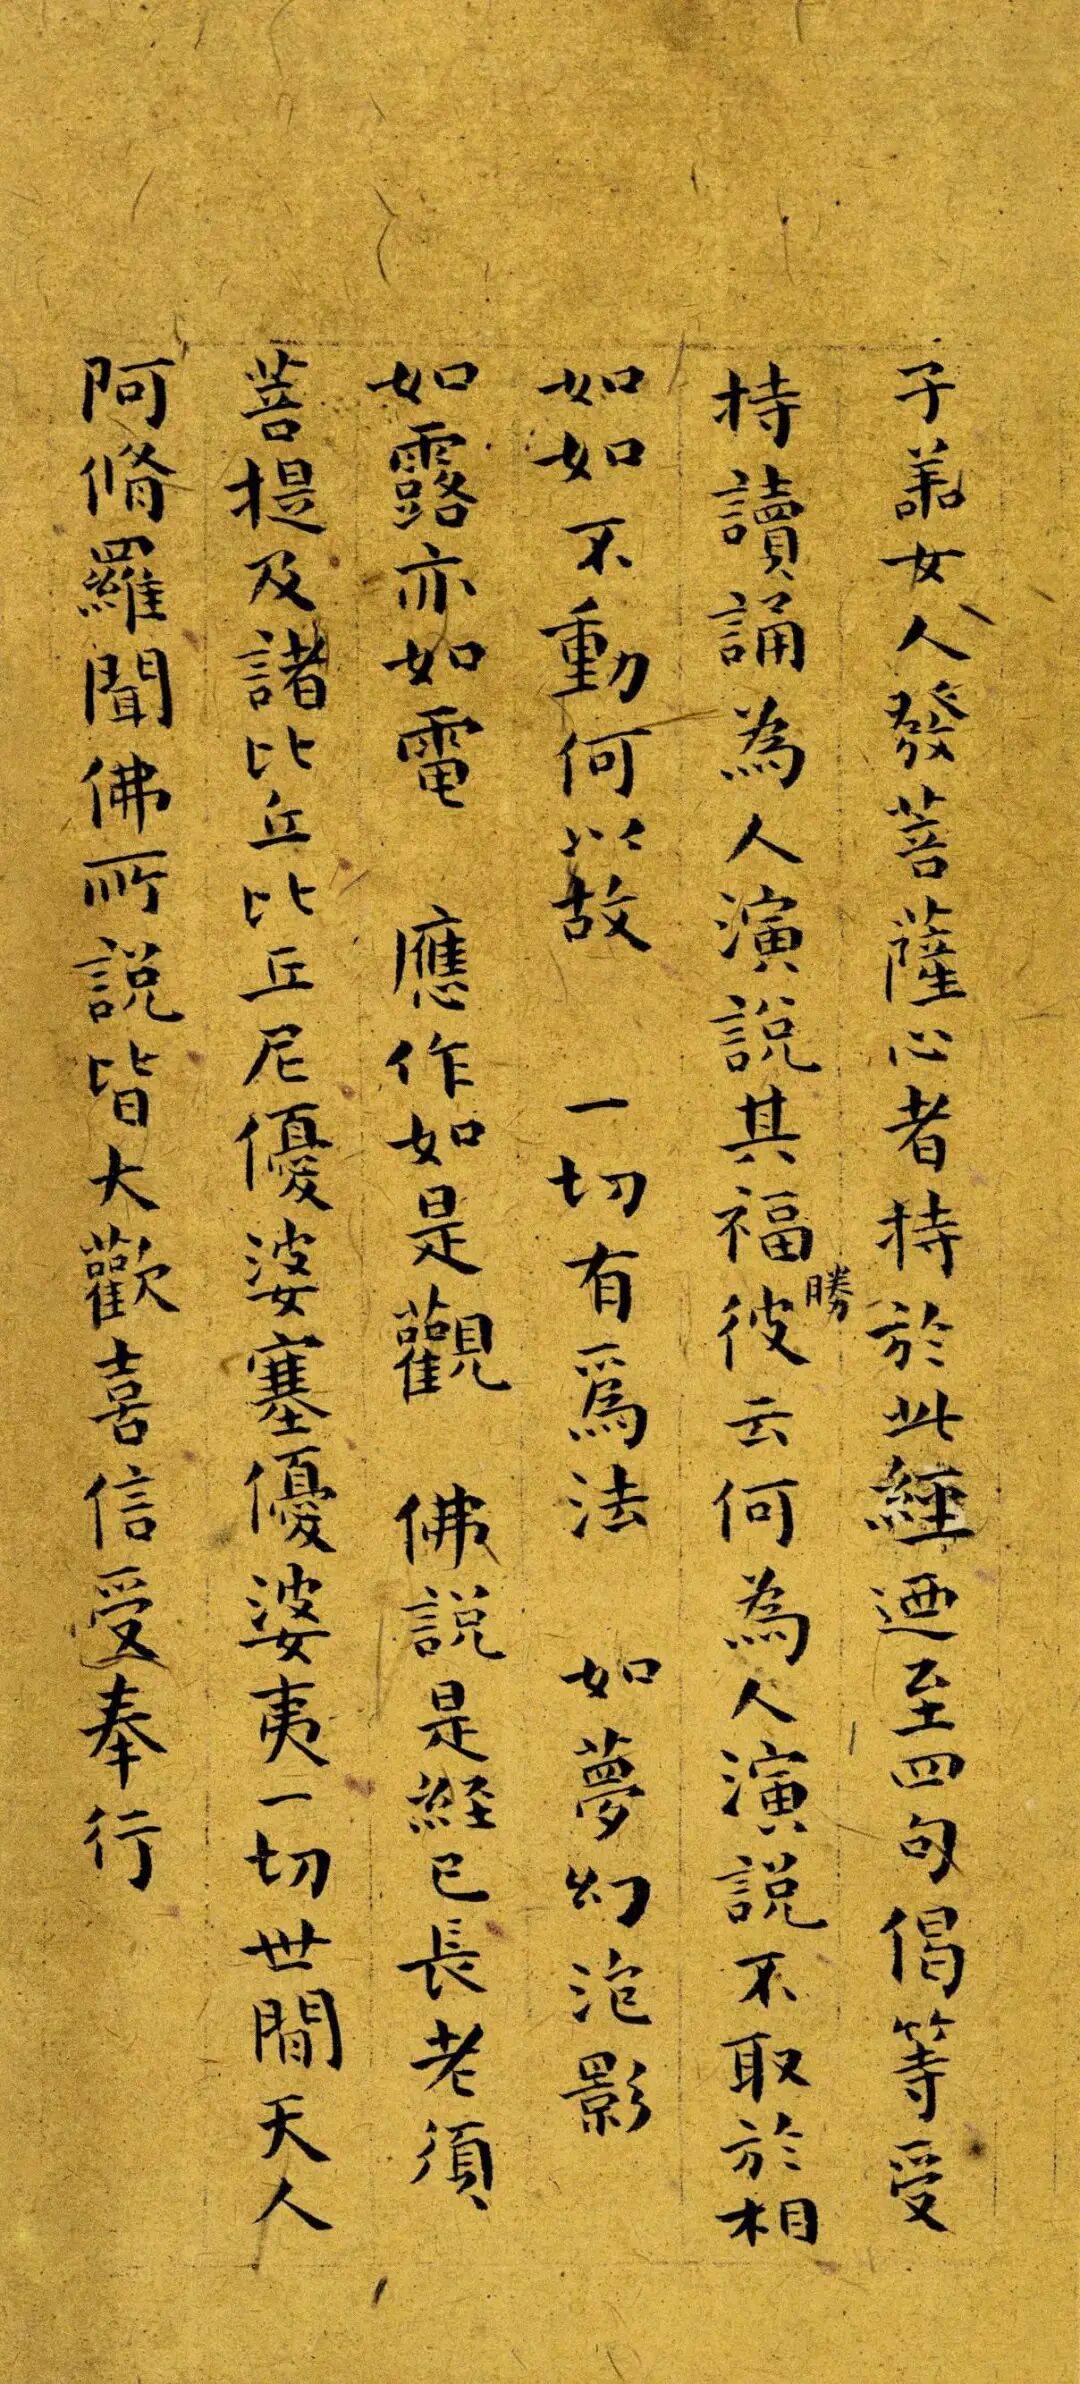 子善女人發菩薩心者持於此經迺至四句偈等受
持讀誦為人演説其福勝彼云何為人演説不取於相
如如不動何以故 一切有爲法 如夢幻泡影
如露亦如電 應作如是觀 佛説是經已長老須
菩提及諸比丘比丘尼優婆塞優婆夷一切世間天人
阿脩羅聞佛所説皆大歡喜信受奉行